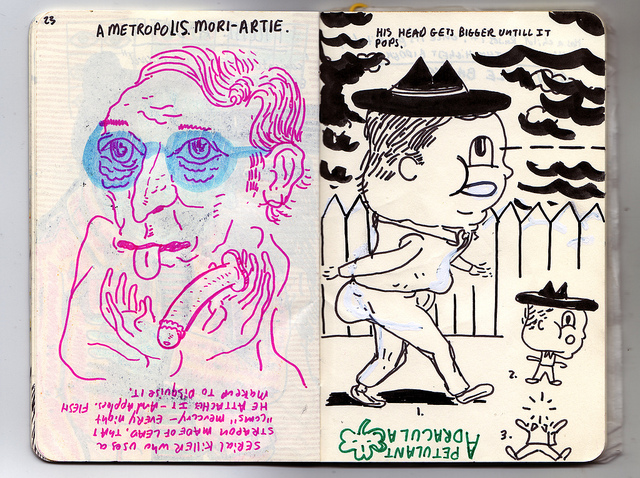 23
A METROPOLIS. MORI-ARTIE.
SERIAL KILLER WHO USES A
STRAPON MADE OF LEAD. THAT
"CUMS" MERCURY - EVERY NIGHT
HE ATTACHES IT - And Applys. FLESH
MAKEUP TO DISGUISE IT.
HIS HEAD GETS BIGGER UNTILL IT
POPS.
1.
2.
3.
PETULANT
ADRACULA